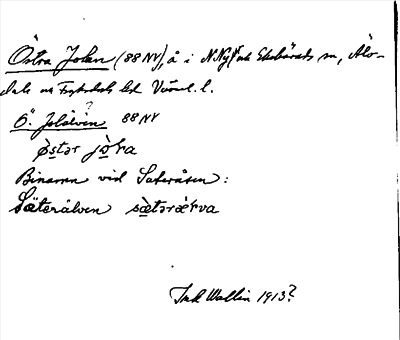 Östra Jolan (88 NV), å i N. Ny och Ekshärads sn, Älv-
dals och Fryksdals hd Värml. l.
?
Ö. Jolälven 88 NV
ø̀stər jò̱ɽa
Binamn vid Säteråsen:
Säterälven sæ̀təræ̀ɽva
Ind Wallin 1913?